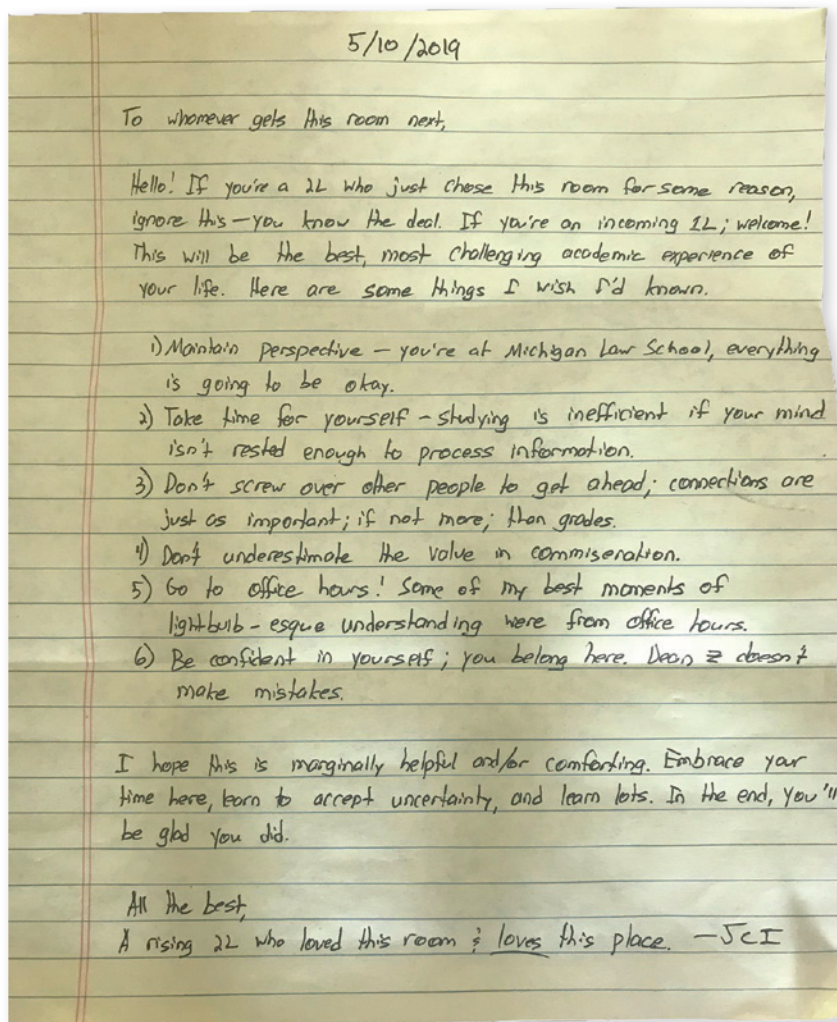 5/10/2019
To whomever gets this room next,
Hello! If you're a 2L who just chose this room for some reason,
ignore this—you know the deal. If you're an incoming 1L; welcome!
This will be the best, most challenging academic experience of
your life. Here are some things I wish I'd known.
1) Maintain perspective – you're at Michigan Law School, everything
is going to be okay.
2) Take time for yourself – studying is inefficient if your mind
isn't rested enough to process information.
3) Don't screw over other people to get ahead; connections are
just as important; if not more; than grades.
4) Don't underestimate the value in commiseration.
5) Go to office hours! Some of my best moments of
lightbulb-esque understanding were from office hours.
6) Be confident in yourself; you belong here. Dean Z doesn't
make mistakes.
I hope this is marginally helpful and/or comforting. Embrace your
time here, learn to accept uncertainty, and learn lots. In the end, you'll
be glad you did.
All the best,
A rising 2L who loved this room & loves this place. —JCI